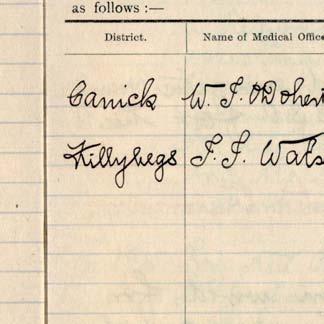 as follows :—
District. Name of Medical Offic
Carrick W. J. O'Dohert
Killybegs J. J. Wats